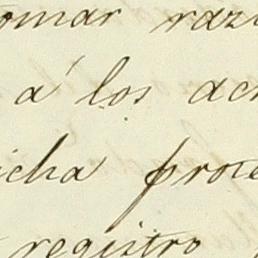 tomar razó
á los acr
icha prote
registro